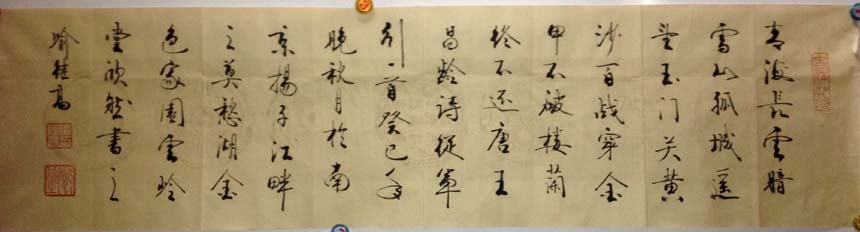 青海長雲暗
雪山孤城遥
望玉门关黄
沙百战穿金
甲不破楼蘭
终不还唐王
昌龄詩從军
行一首癸巳年
晚秋月於南
京揚子江畔
之莫愁湖金
色家園雲吟
堂欣然書之
喻继高